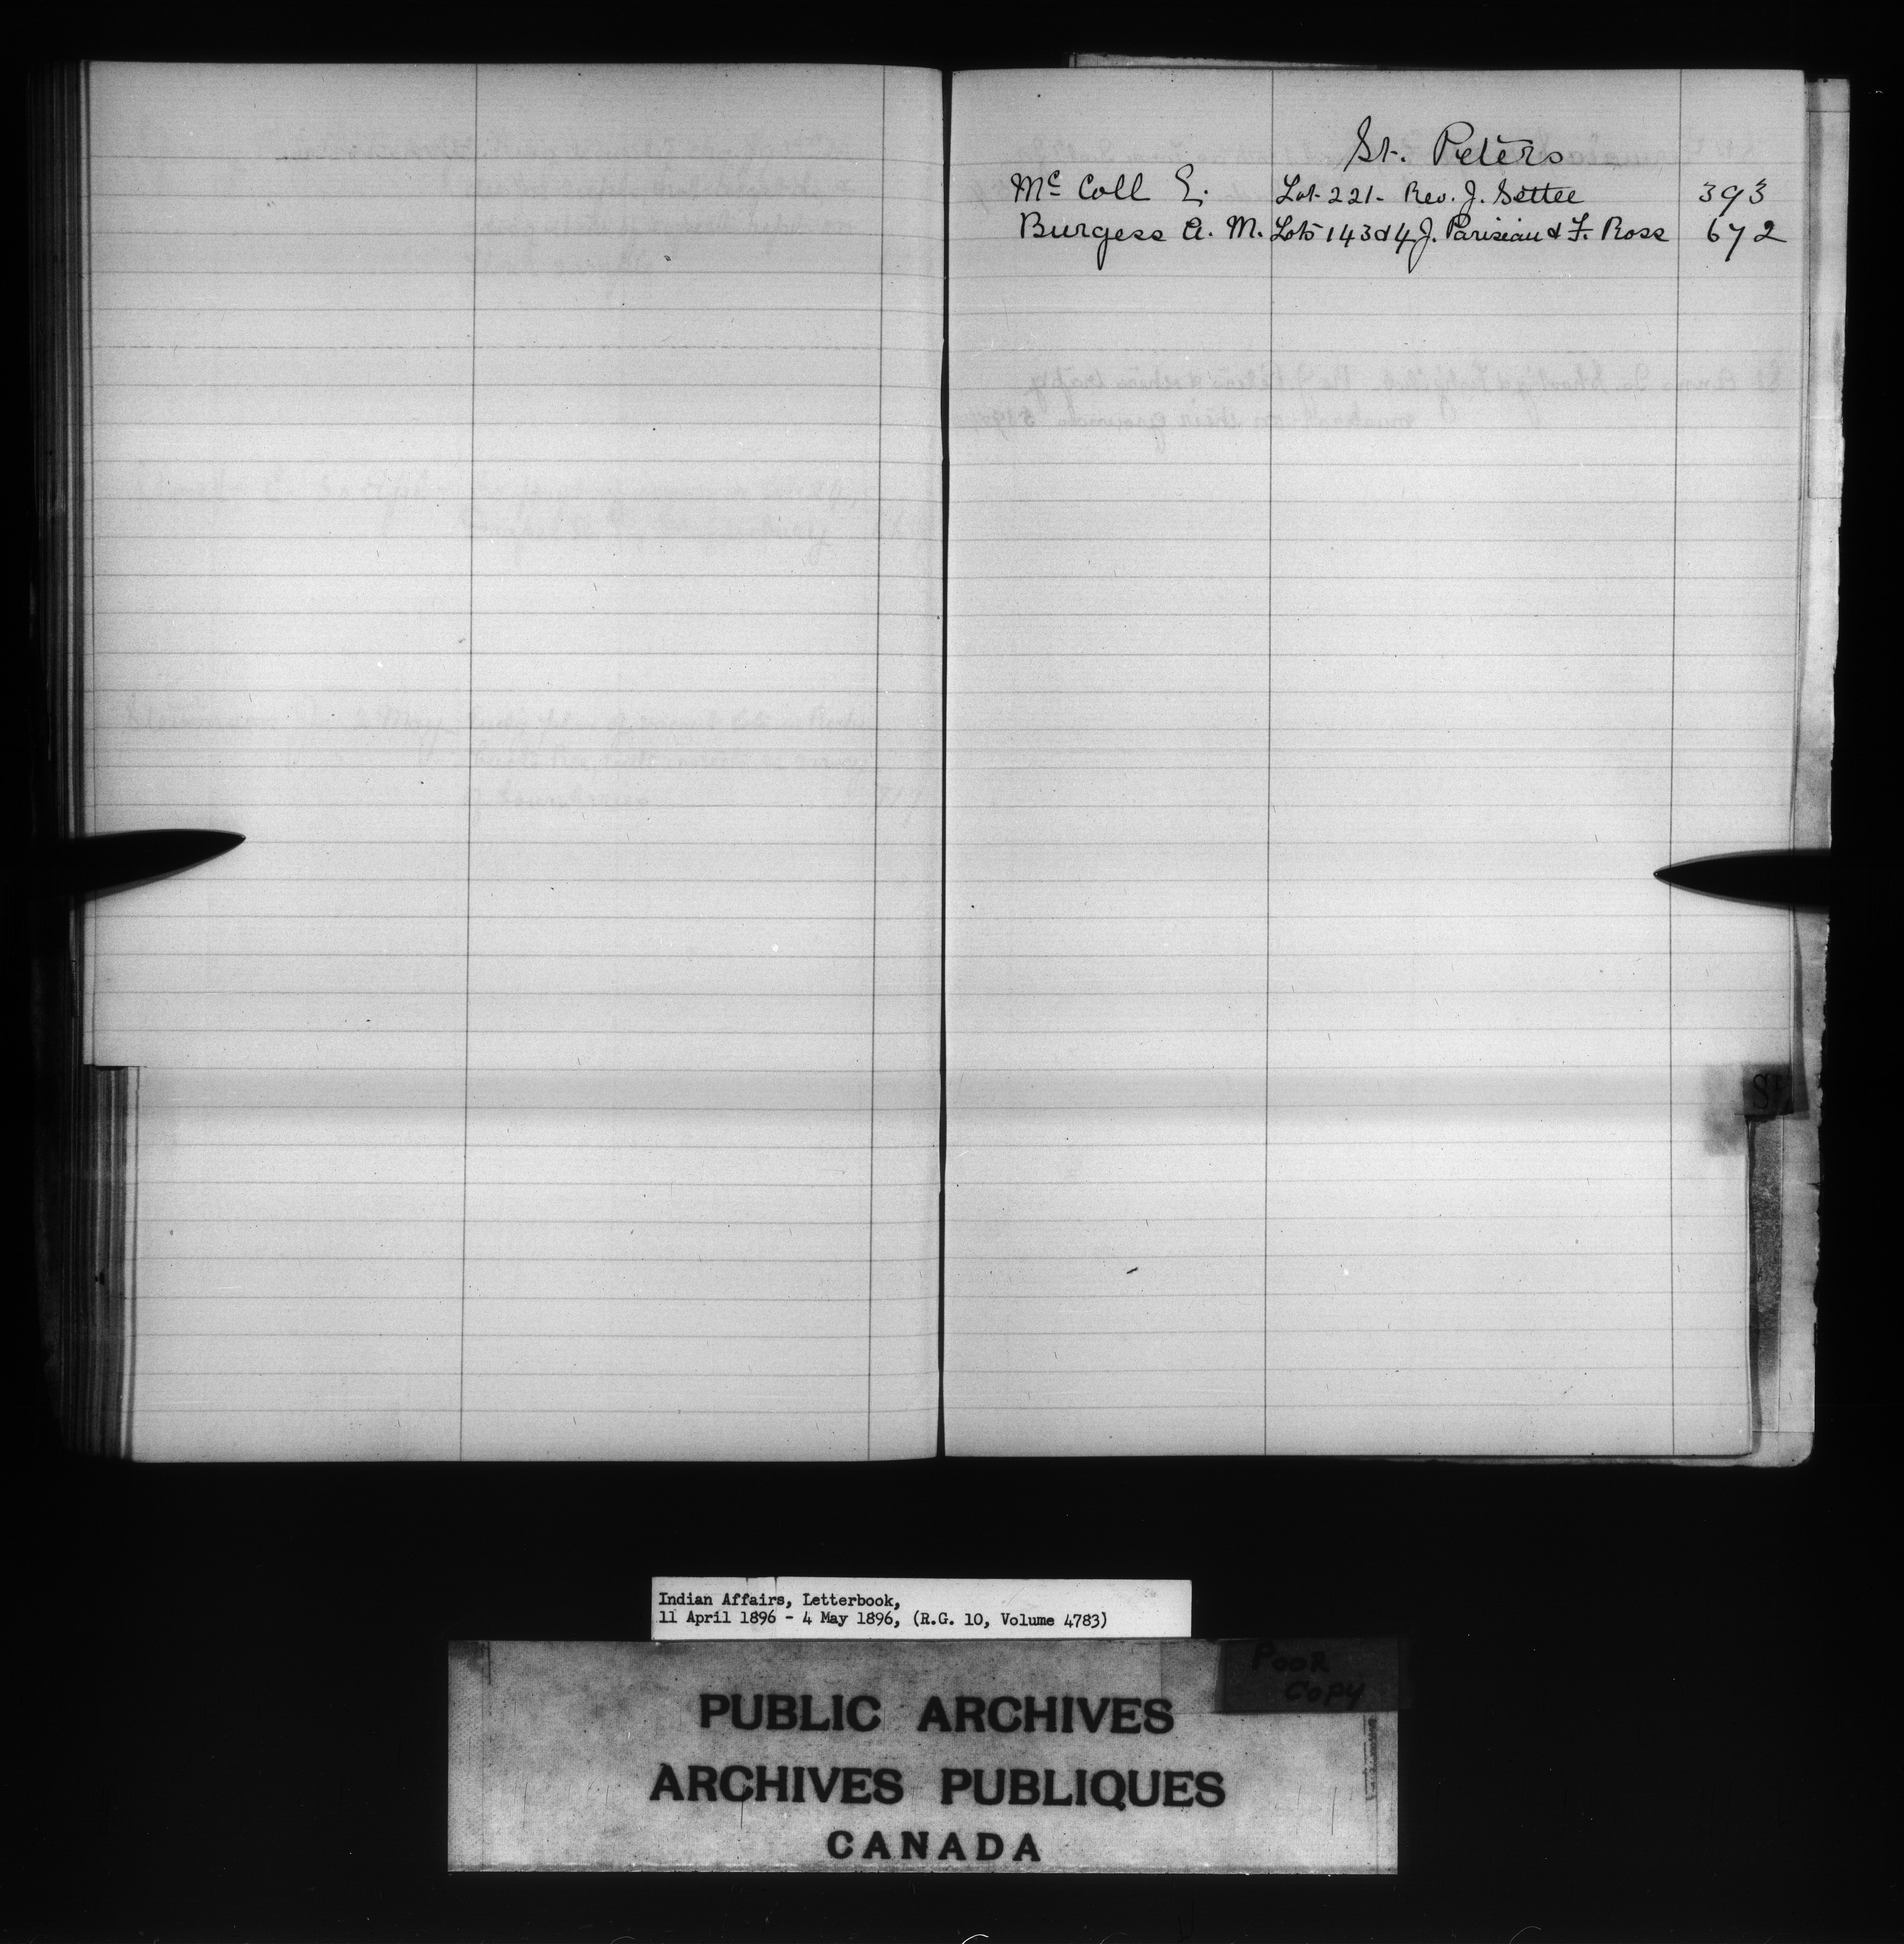 St. Peters
Mc Coll E. Lot 221 - Rev. J. Settee 393
Burgess A. M. Lots 143 & 4 J. Parisien & F. Ross 672
Indian Affairs, Letterbook,
11 April 1896 - 4 May 1896, (R.G. 10, Volume 4783)
POOR
COPY
PUBLIC ARCHIVES
ARCHIVES PUBLIQUES
CANADA